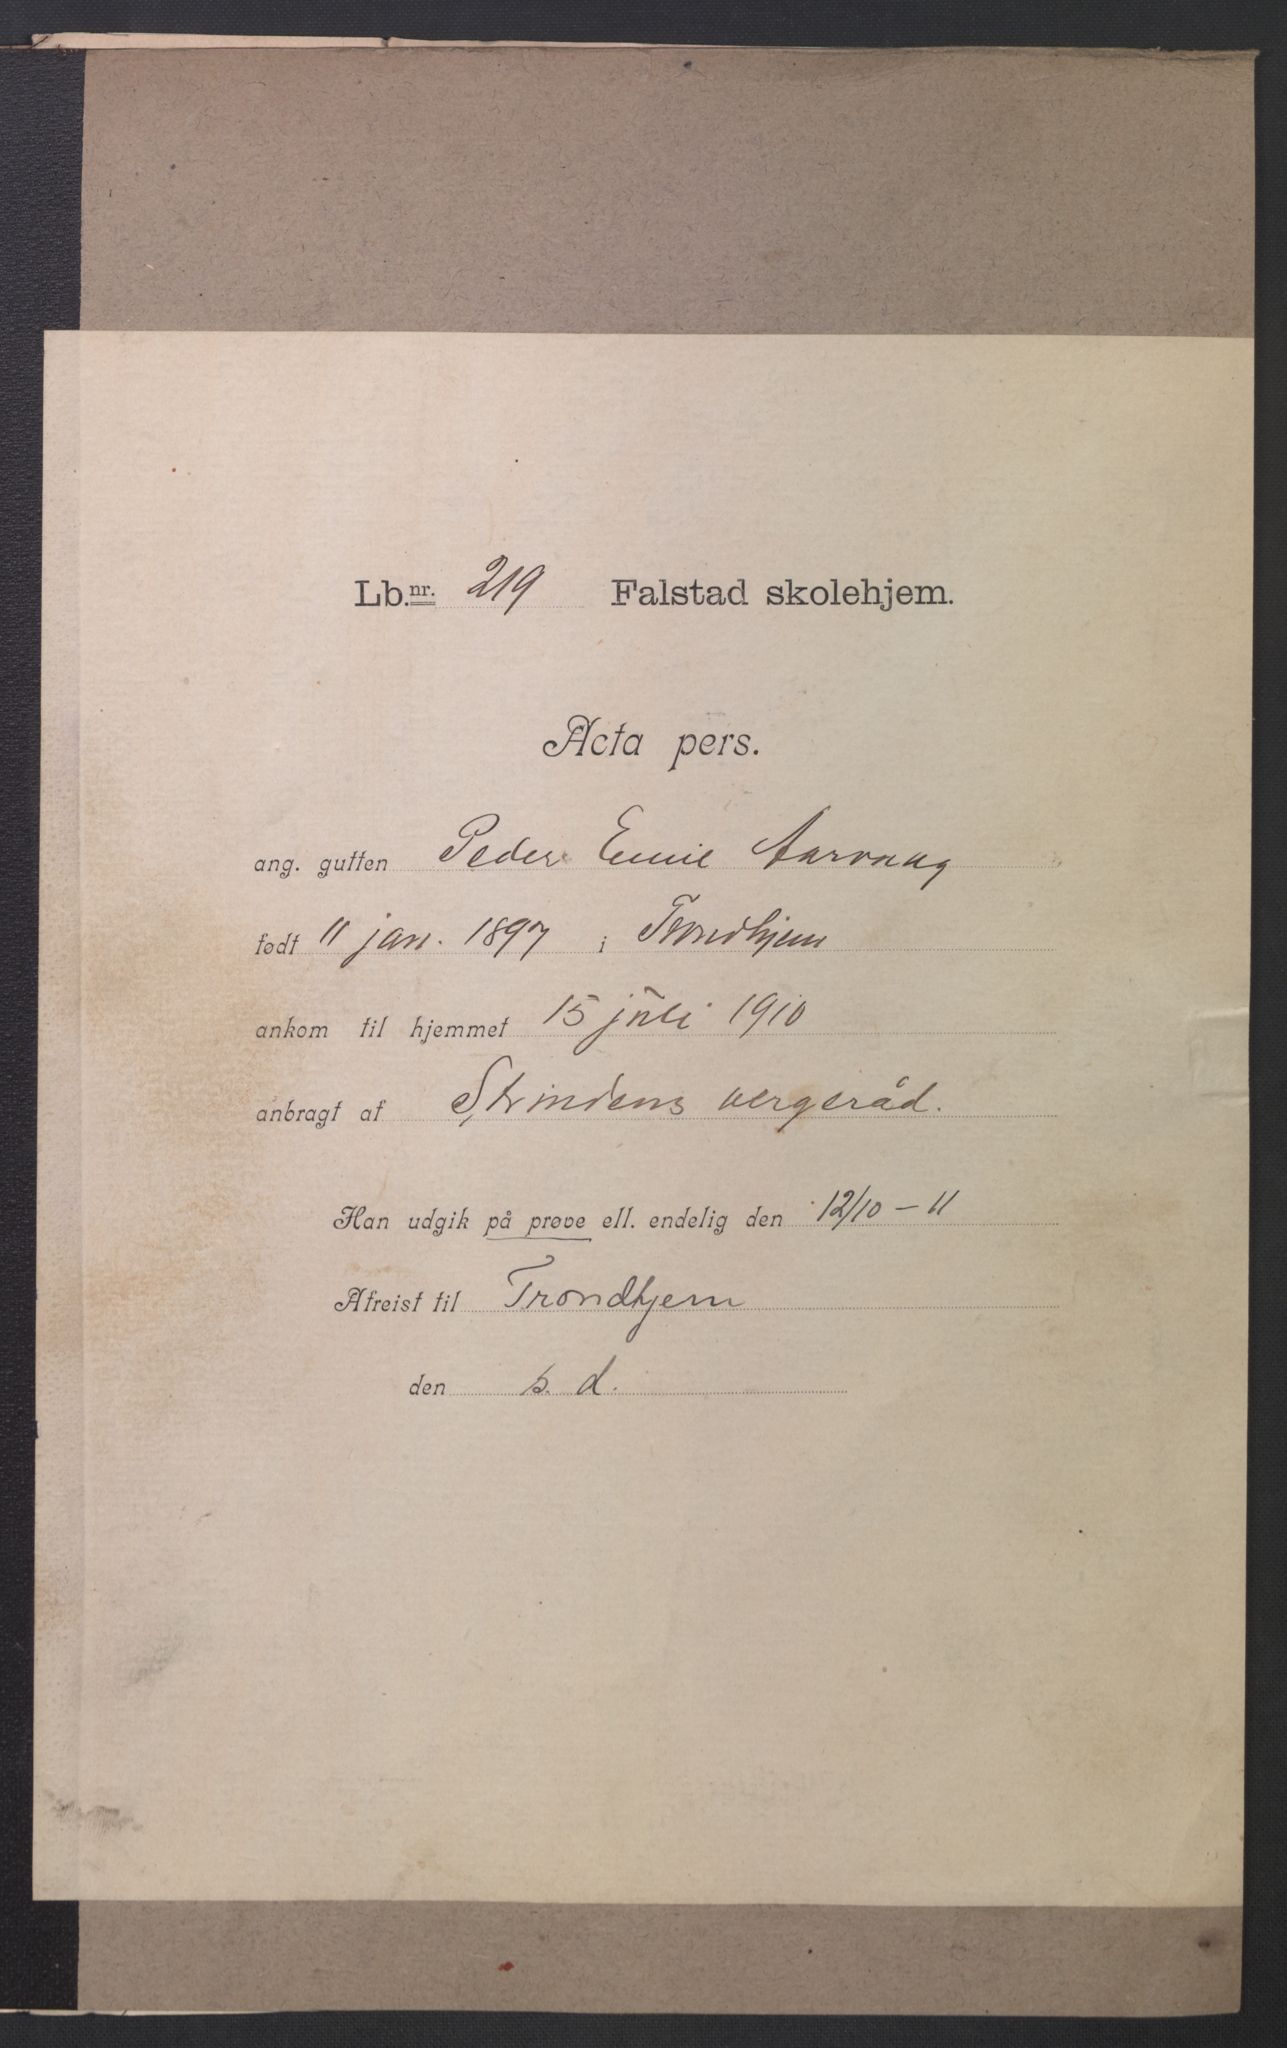 Lb.nr. 219 Falstad skolehjem.
Acta pers.
ang. gutten Peder Emil Aarvaag
født 11 jan. 1897 i Trondhjem
ankom til hjemmet 15 juli 1910
anbragt af Strindens vergeråd.
Han udgik på prøve ell. endelig den 12/10 – 11
Afreist til Trondhjem
den s. d.